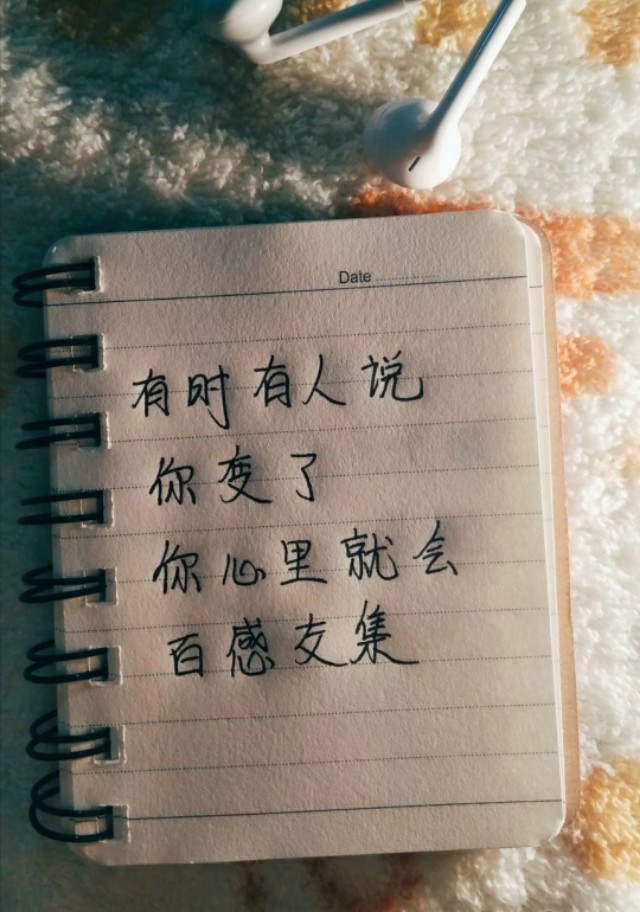 Date
有时有人说
你变了
你心里就会
百感友集